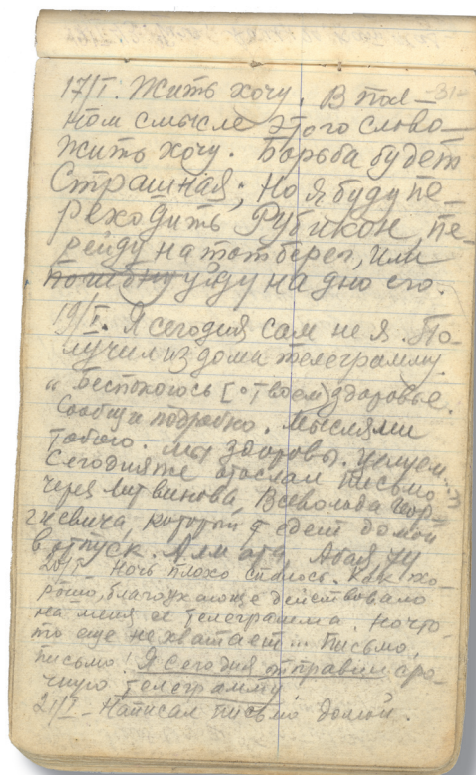 -31-
17/I. Жить хочу. В пол-
ном смысле этого слово-
Жить хочу. Борьба будет
Страшная; Но я буду пе-
реходить Рубикон, пе-
рейду на тот берег, или
погибну уйду на дно его.
19/I. Я сегодня сам не я. По-
лучил из дома телеграмму.
„Беспокоюсь [о твоем] здоровье.
Сообщи подробно. Мыслями
тобою. Мы здоровы. Целуем..."
Сегодня же отослал письмо
через Литвинова, Всеволода Геор-
гиевича, который едет домой
в отпуск. Алма ата, Абая 74
20/I Ночь плохо спалось. Как хо-
рошо, благоухающе действовало
на меня ее телеграмма. Но что-
то еще не хватает... Письмо,
письмо! Я сегодня отправил сро-
чную телеграмму
21/I - Написал письмо домой.